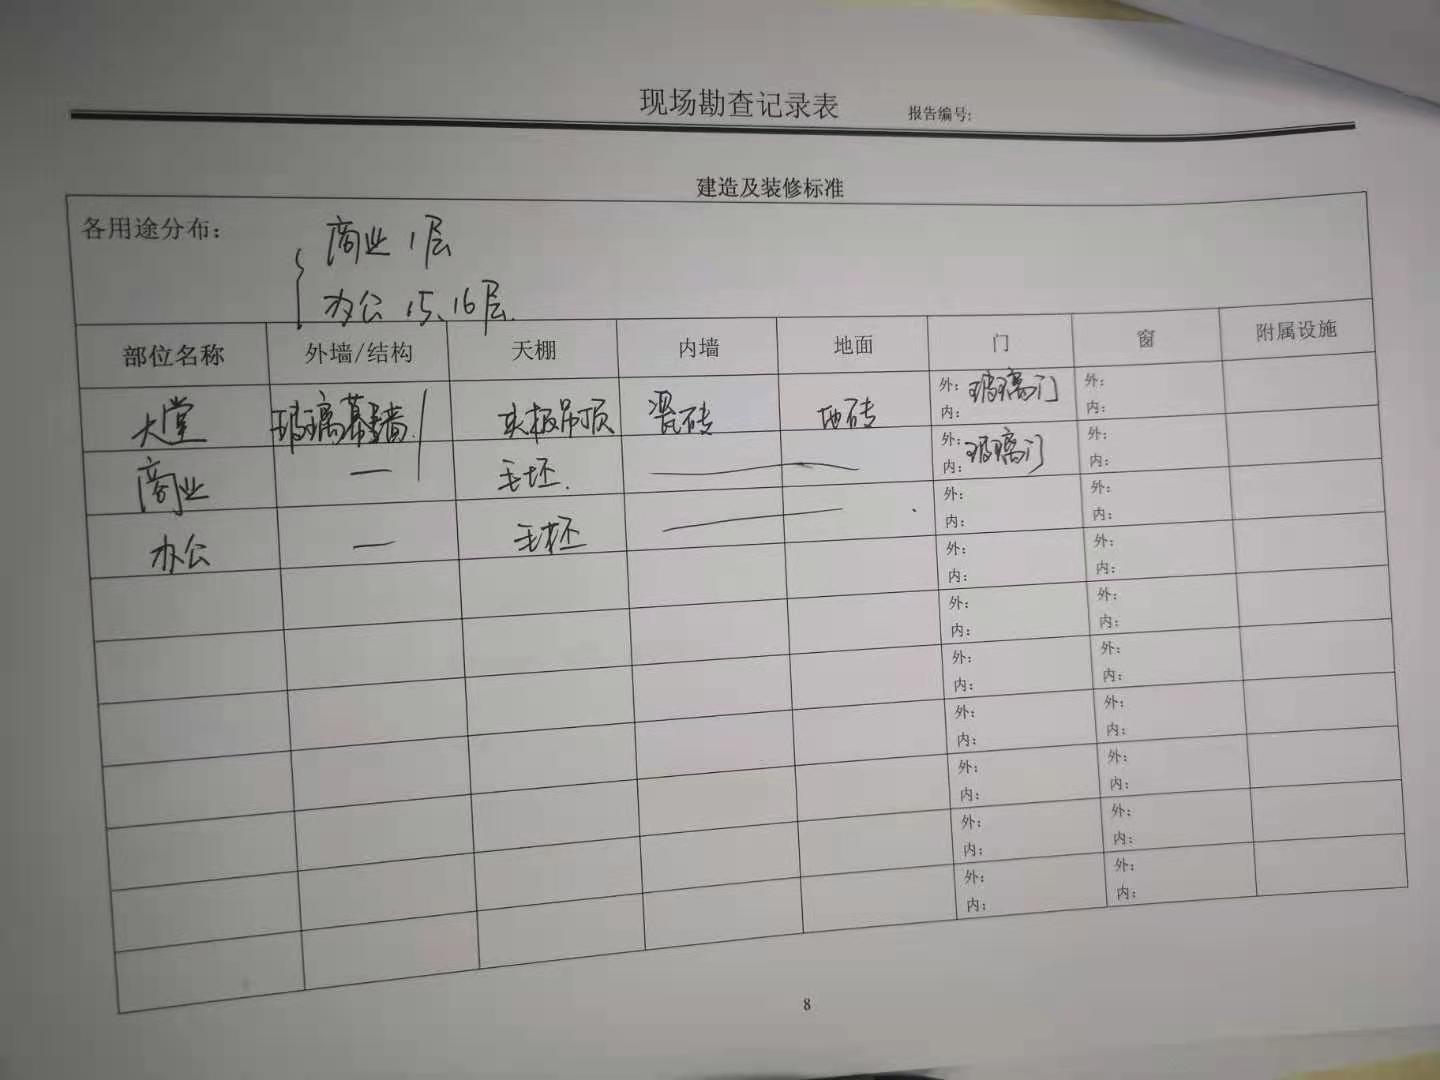 现场勘查记录表 报告编号:
建造及装修标准
各用途分布: 商业 1层
办公 15、16层.
部位名称 外墙/结构 天棚 内墙 地面 门 窗 附属设施
大堂 玻璃幕墙 夹板吊顶 瓷砖 地砖 外: 玻璃门 外:
内: 内:
商业 — 毛坯. — 外: 玻璃门 外:
内: 内:
办公 — 毛坯 — 外: 外:
内: 内:
外: 外:
内: 内:
外: 外:
内: 内:
外: 外:
内: 内:
外: 外:
内: 内:
外: 外:
内: 内:
外: 外:
内: 内:
外: 外:
内: 内:
8